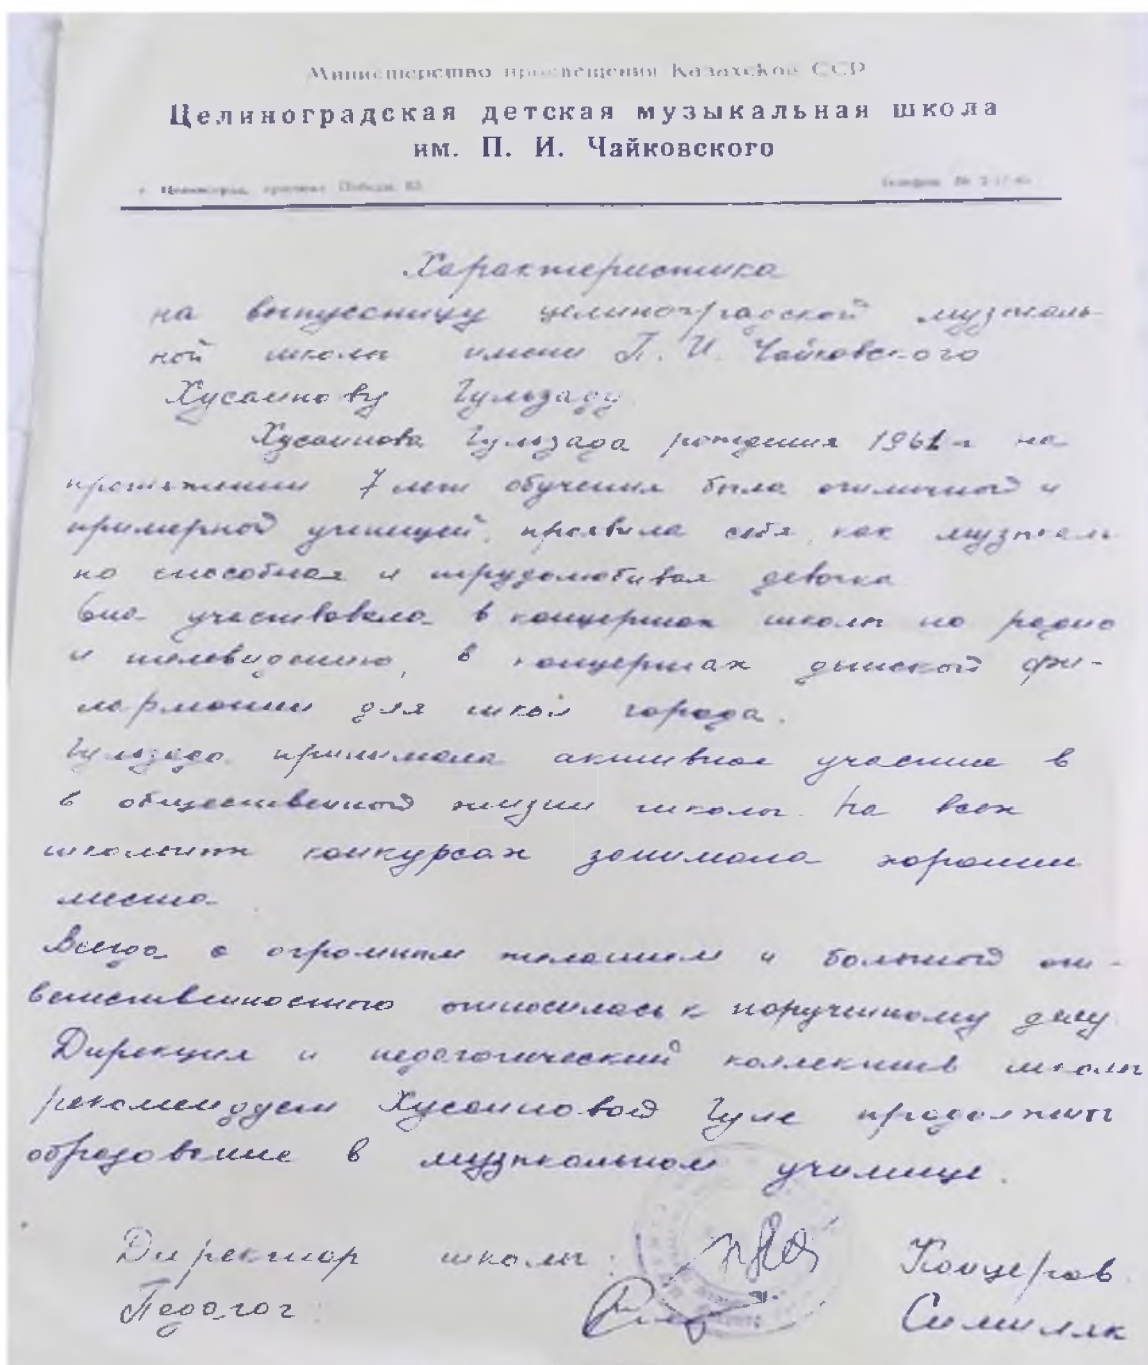 Министерство просвещения Казахской ССР
Целиноградская детская музыкальная школа
им. П. И. Чайковского
г. Целиноград, проспект Победы
Телефон №
Характеристика
на выпускницу целиноградской музыкаль-
ной школы имени П. И. Чайковского
Хусаинову Гульзаду
Хусаинова Гульзада рождения 1961 г на
протяжении 7 лет обучения была отличной и
примерной ученицей, проявила себя, как музыкаль
но способная и трудолюбивая девочка
Она участвовала в концертах школы по радио
и телевидению, в концертах детской фи-
лармонии для школ города.
Гульзада принимала активное участие в
в общественной жизни школы. На всех
школьных конкурсах занимала хорошие
места.
Всегда с огромным желанием и большой от-
ветственностью относилась к порученному делу.
Дирекция и педагогический коллектив школы
рекомендует Хусаиновой Гуле продолжить
образование в музыкальном училище.
Директор школы: Концеров
Педагог: Симиляк